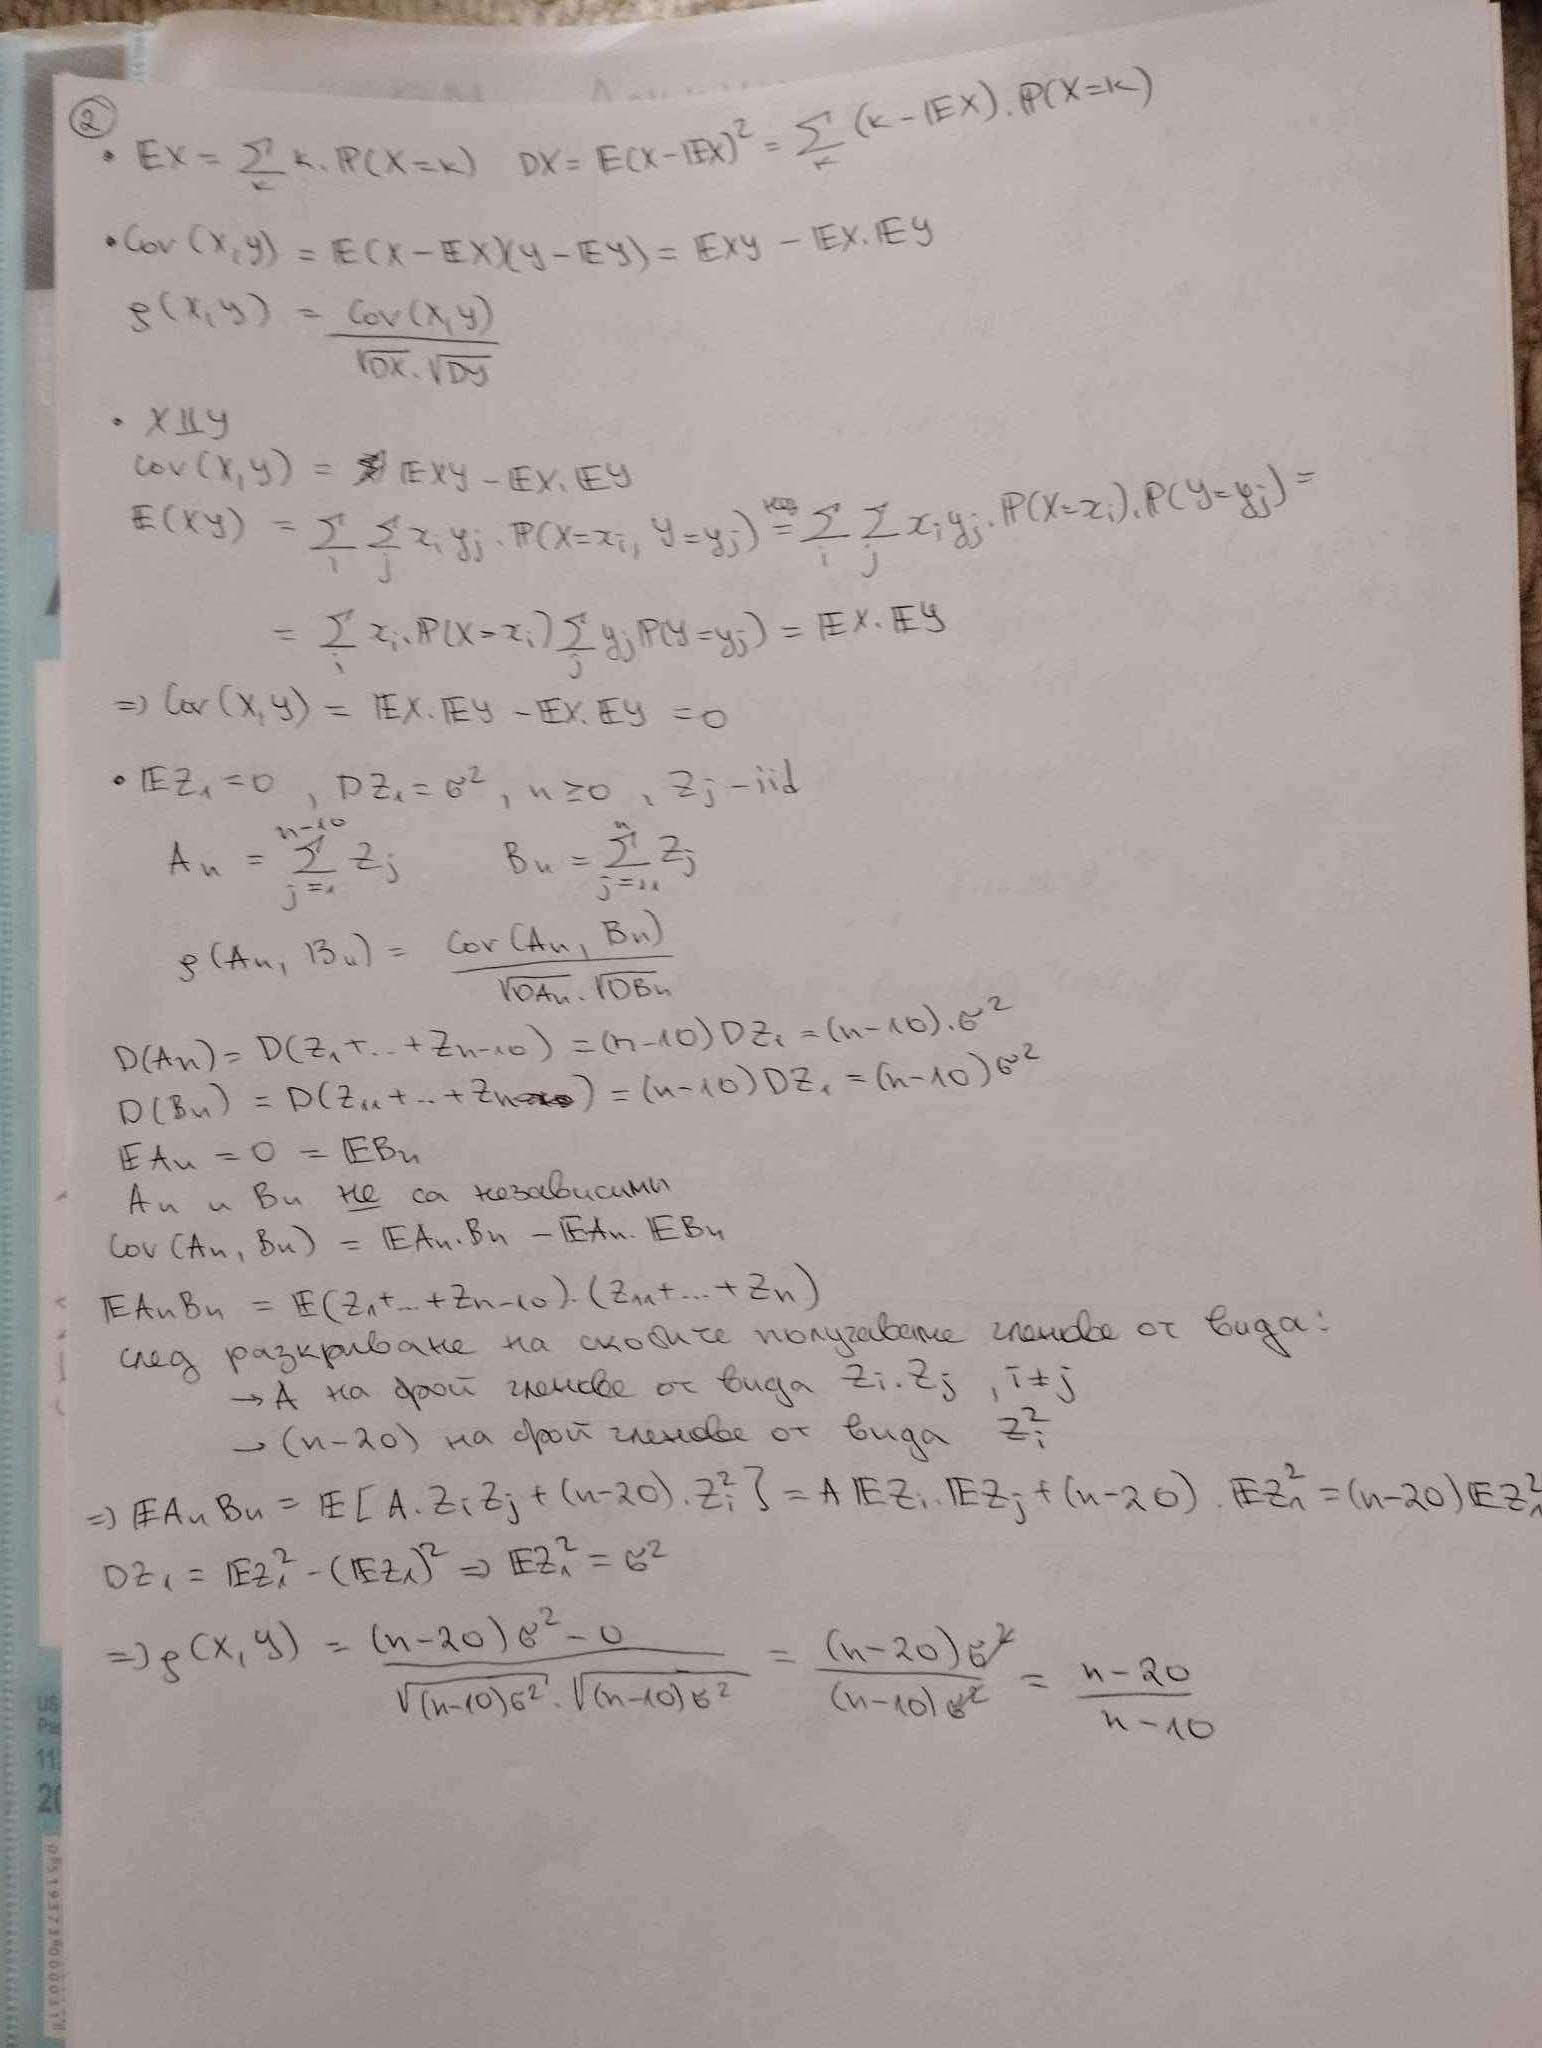 ②
• EX = Σ_k k. ℙ(X=k)   DX = E(X-EX)² = Σ_k (k-EX). ℙ(X=k)
• Cov (X,Y) = E(X-EX)(Y-EY) = EXY - EX.EY
ρ(X,Y) = Cov(X,Y) / √DX.√DY
• X⊥⊥Y
Cov(X,Y) = EXY - EX.EY
E(XY) = Σ_i Σ_j x_i y_j . ℙ(X=x_i, Y=y_j) = Σ_i Σ_j x_i y_j . ℙ(X=x_i).ℙ(Y=y_j) =
= Σ_i x_i.ℙ(X=x_i) Σ_j y_j ℙ(Y=y_j) = EX.EY
=> Cov (X,Y) = EX.EY - EX.EY = 0
• EZ₁=0, DZ₁=σ², n≥0, Z_j - iid
A_n = Σ_{j=1}^{n-10} Z_j   B_n = Σ_{j=11}^{n} Z_j
ρ(A_n, B_n) = Cov(A_n, B_n) / √DA_n.√DB_n
D(A_n) = D(Z₁+..+Z_{n-10}) = (n-10)DZ₁ = (n-10).σ²
D(B_n) = D(Z₁₁+..+Z_n) = (n-10)DZ₁ = (n-10)σ²
EA_n = 0 = EB_n
A_n и B_n не са независими
Cov (A_n, B_n) = EA_n.B_n - EA_n.EB_n
EA_nB_n = E(Z₁+...+Z_{n-10}).(Z₁₁+...+Z_n)
след разкриване на скобите получаваме членове от вида:
→ A на брой членове от вида Z_i.Z_j, i≠j
→ (n-20) на брой членове от вида Z_i²
=> EA_nB_n = E[A.Z_iZ_j + (n-20).Z_i²] = A EZ_i.EZ_j + (n-20).EZ₁² = (n-20)EZ₁²
DZ₁ = EZ₁² - (EZ₁)² => EZ₁² = σ²
=> ρ(X,Y) = (n-20)σ²-0 / √(n-10)σ².√(n-10)σ² = (n-20)σ² / (n-10)σ² = n-20 / n-10